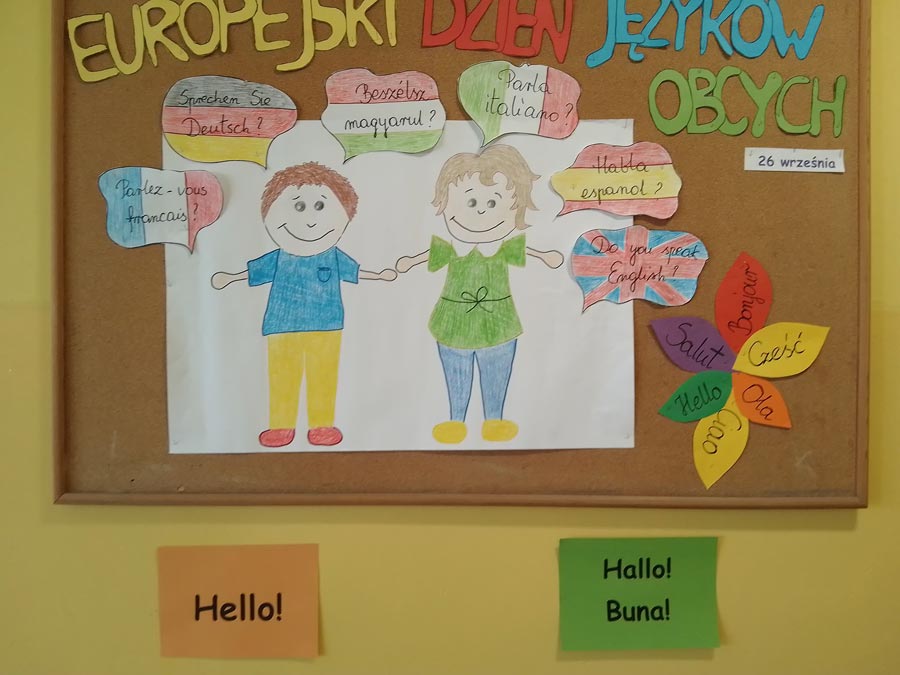 EUROPEJSKI DZIEŃ JĘZYKÓW
OBCYCH
26 września
Sprechen Sie
Deutsch?
Beszélsz
magyarul?
Parla
italiano?
Parlez-vous
francais?
Habla
espanol?
Do you speak
English?
Bonjour
Cześć
Ola
Ciao
Hello
Salut
Hello!
Hallo!
Buna!